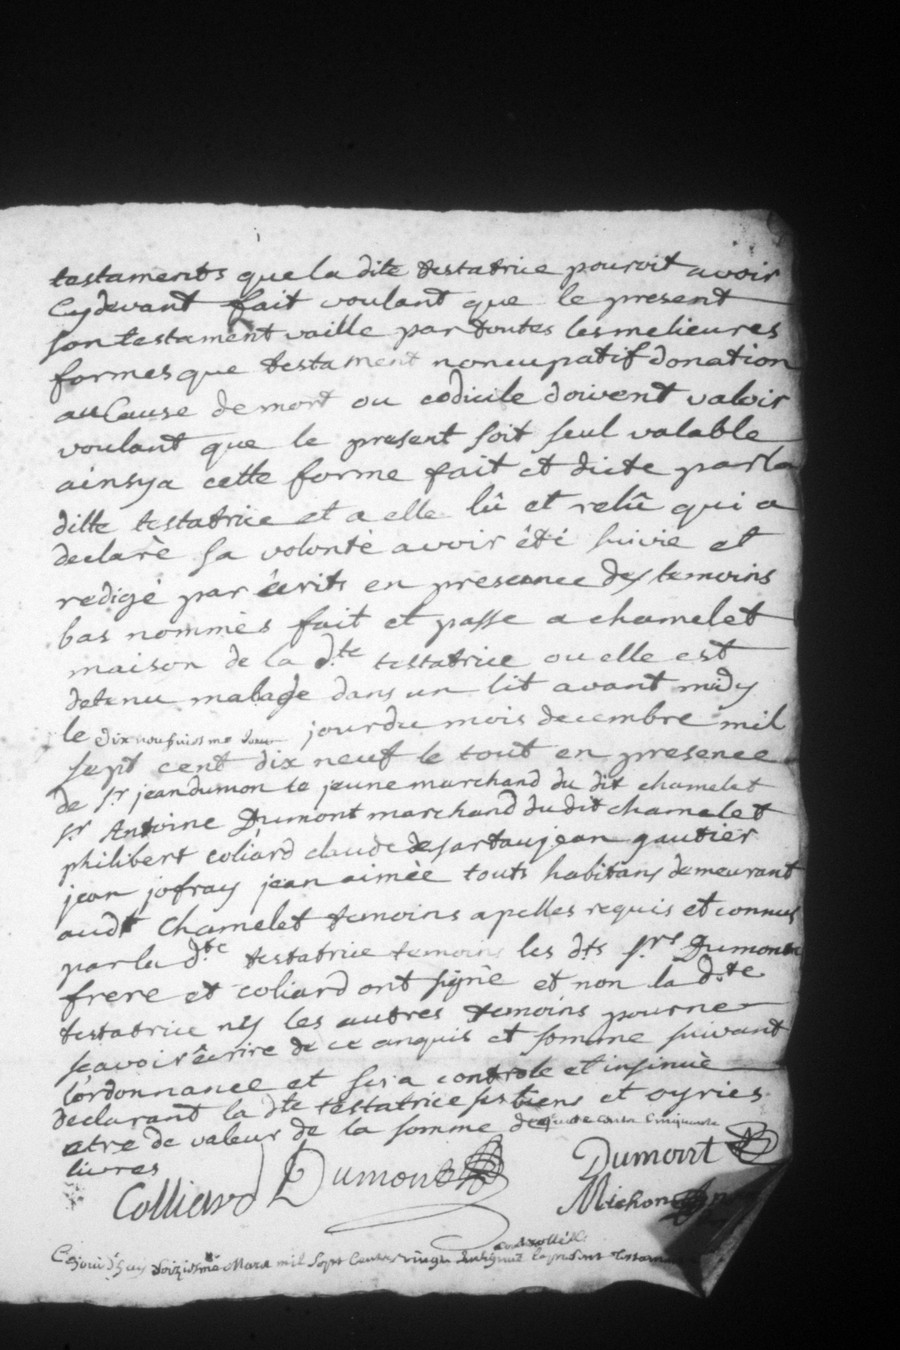 testaments que la dite testatrice pouroit avoir
Cy devant fait voulant que le present
son testament vaille par toutes les melieures
formes que testament noncupatif donation
au Cause de mort ou codicile doivent valoir
voulant que le present soit seul valable
ainsy a cette forme fait et dicte par la
ditte testatrice et a elle lû et relû qui a
declarè sa volonté avoir été suivie et
redigé par êcrits en presence des temoins
bas nommès fait et passe a chamelet
maison de la d.te testatrice ou elle est
detenu malade dans un lit avant midy
le jour du mois decembre mil
sept cent dix neuf le tout en presence
de sr jean dumon te jeune marchand du dit chamelet
sr Antoine Dumont marchand du dit chamelet
philibert coliard claude desartaujean gautier
jean jofray jean aimèe touts habitans demeurant
audt Chamelet temoins apelles requis et connus
par la d.te testatrice temoins les dts srs Dumont
frere et coliard ont signè et non la d.te
testatrice ny les autres temoins pour ne
scavoir êcrire de ce anquis et somme suivant
l'ordonnance et sera controle et insinuè
declarant la dte testatrice ses biens et oyries
etre de valeur de la somme de cinquante
livres
Colliard Dumont Dumont
Michon
controllé
Cejourd'huy mars mil sept cents vingt le present testament